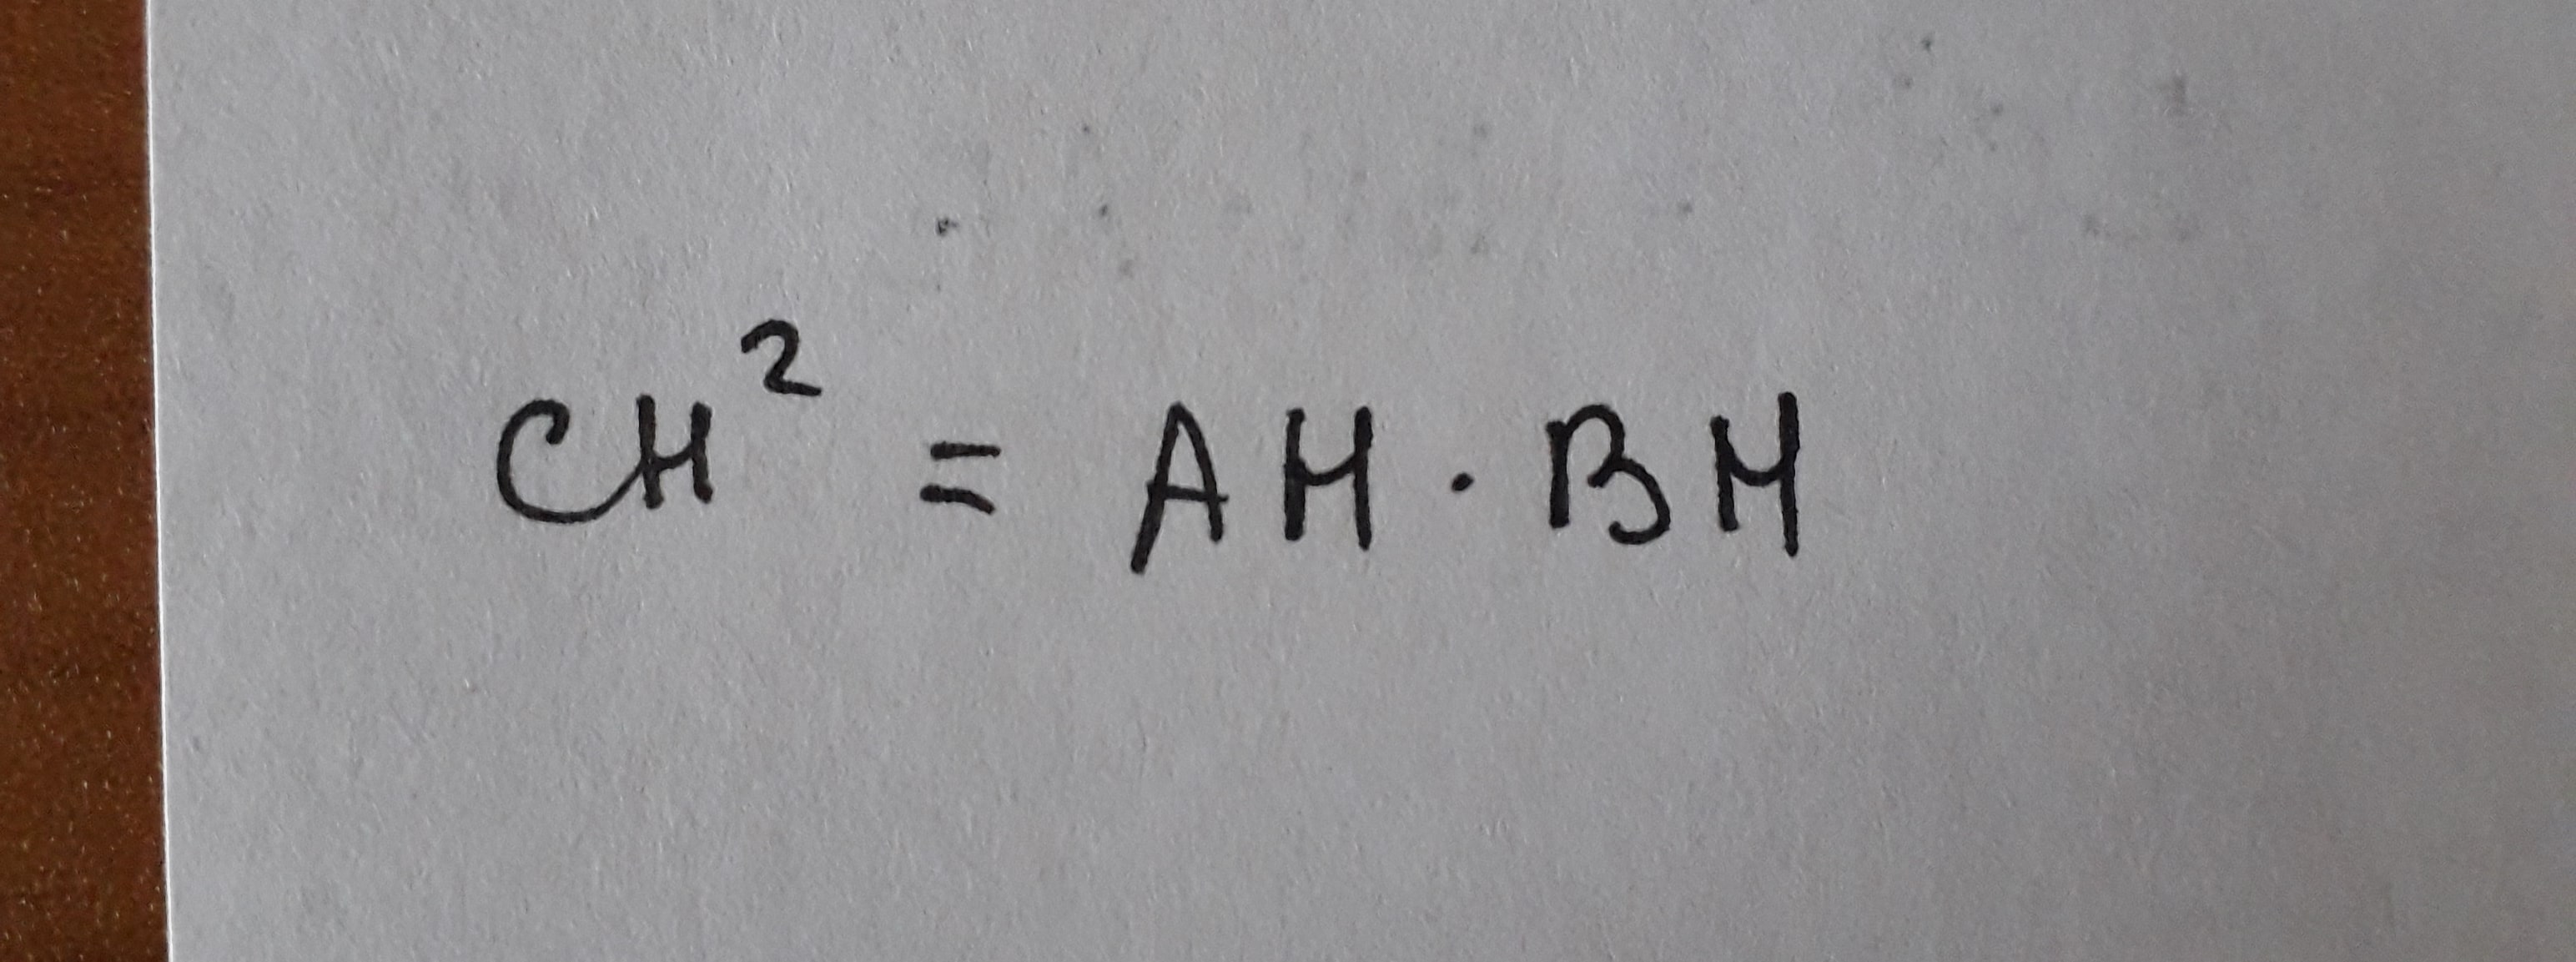 CH² = AH · BH